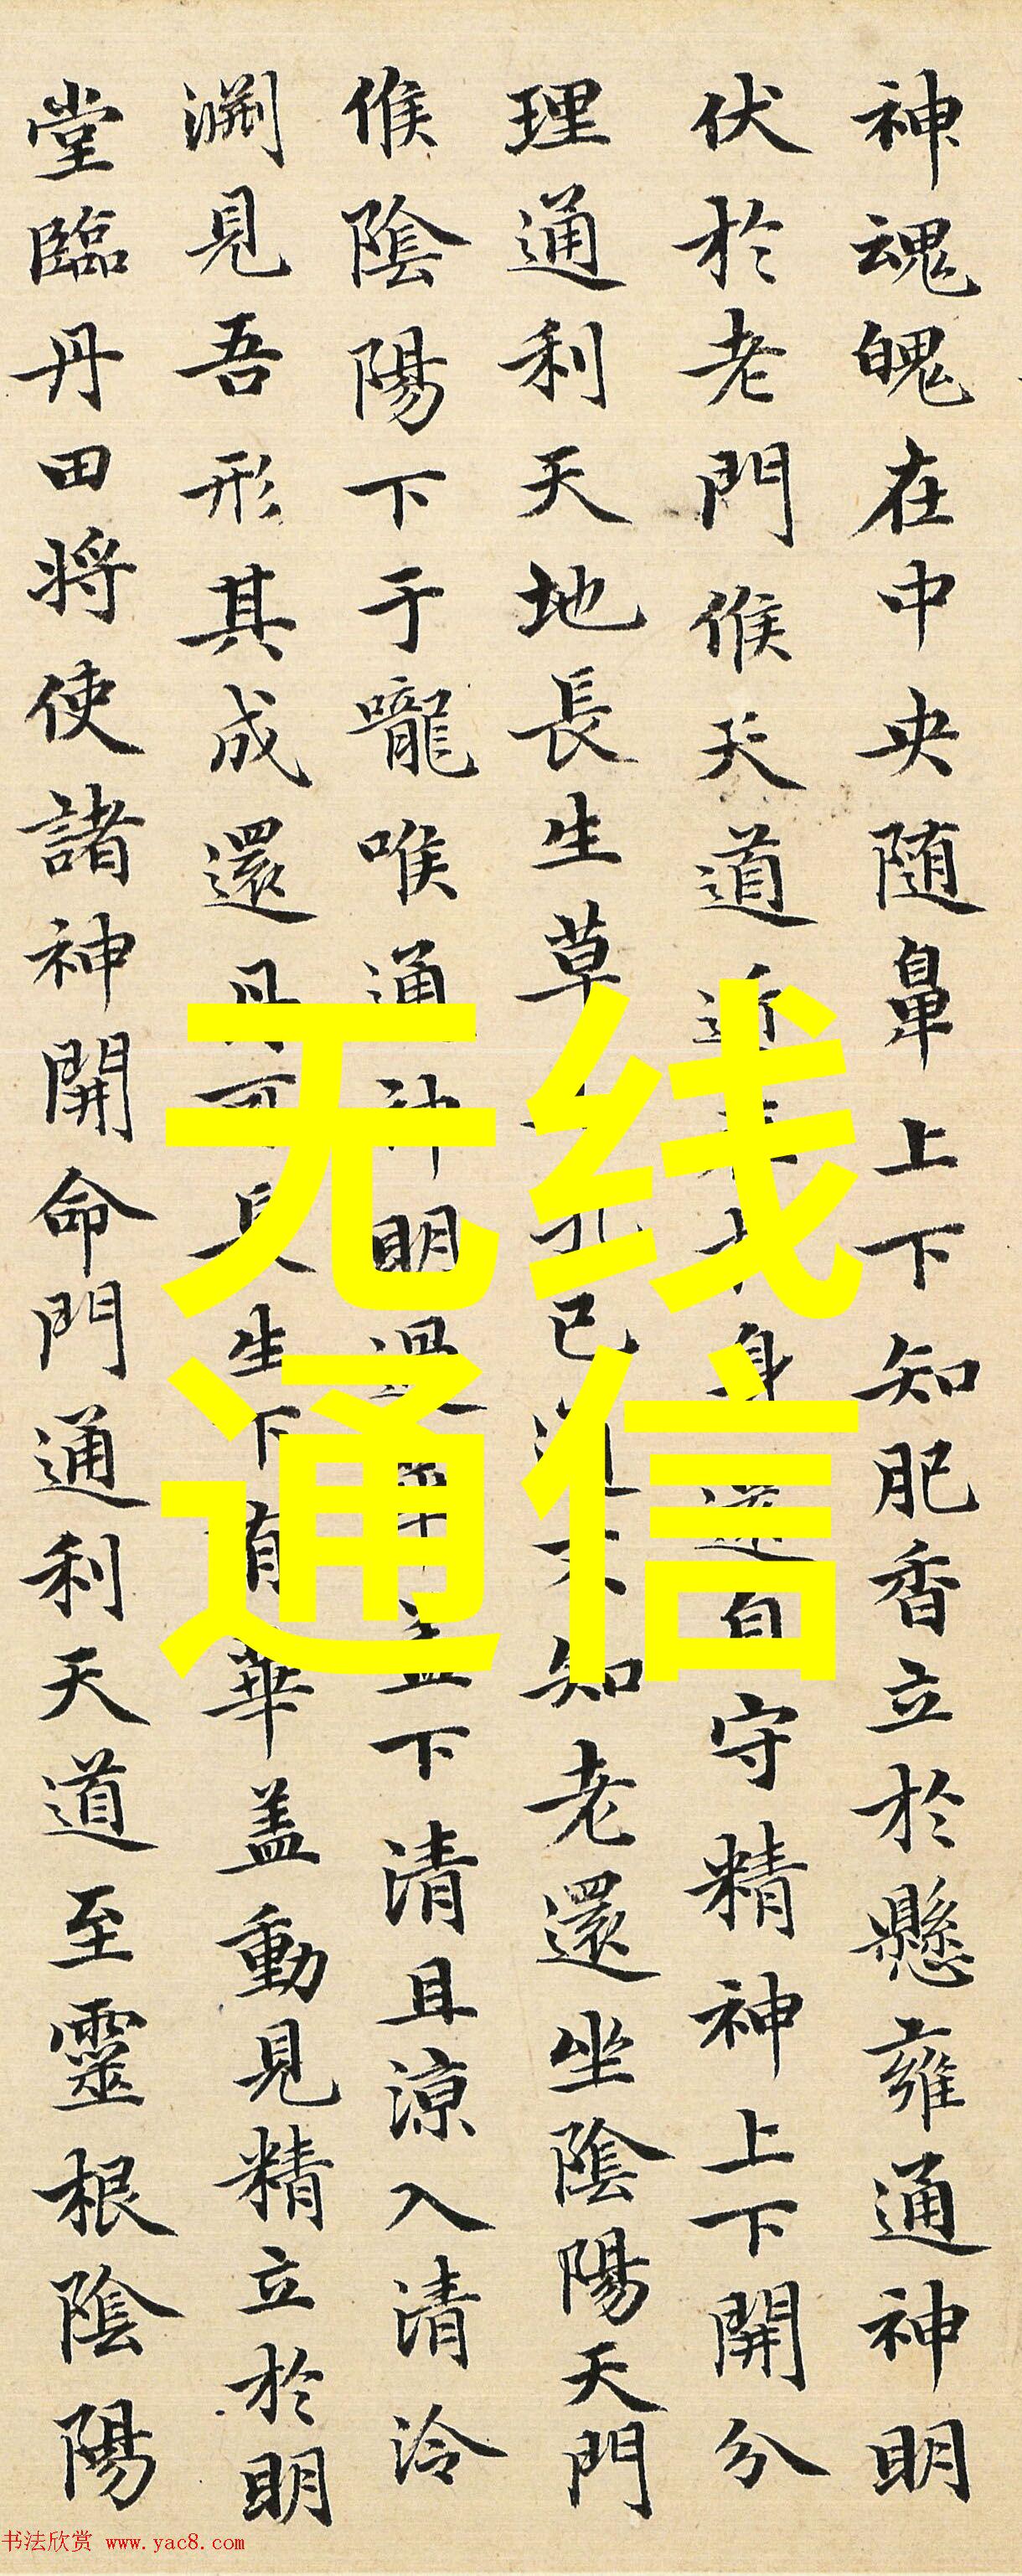 神魂魄在中央随鼻上下知肥香立於懸雍通神明
伏於老門候天道近身還自守精神上下開分
理通利天地長生草孔已通不知老還坐陰陽天門
候陰陽下于嚨喉通神明過華蓋下清且涼入清泠
淵見吾形其成還丹可長生下有華盖動見精立於明
堂臨丹田将使諸神開命門通利天道至靈根陰陽
无线
通信
书法欣赏 www.yac8.com